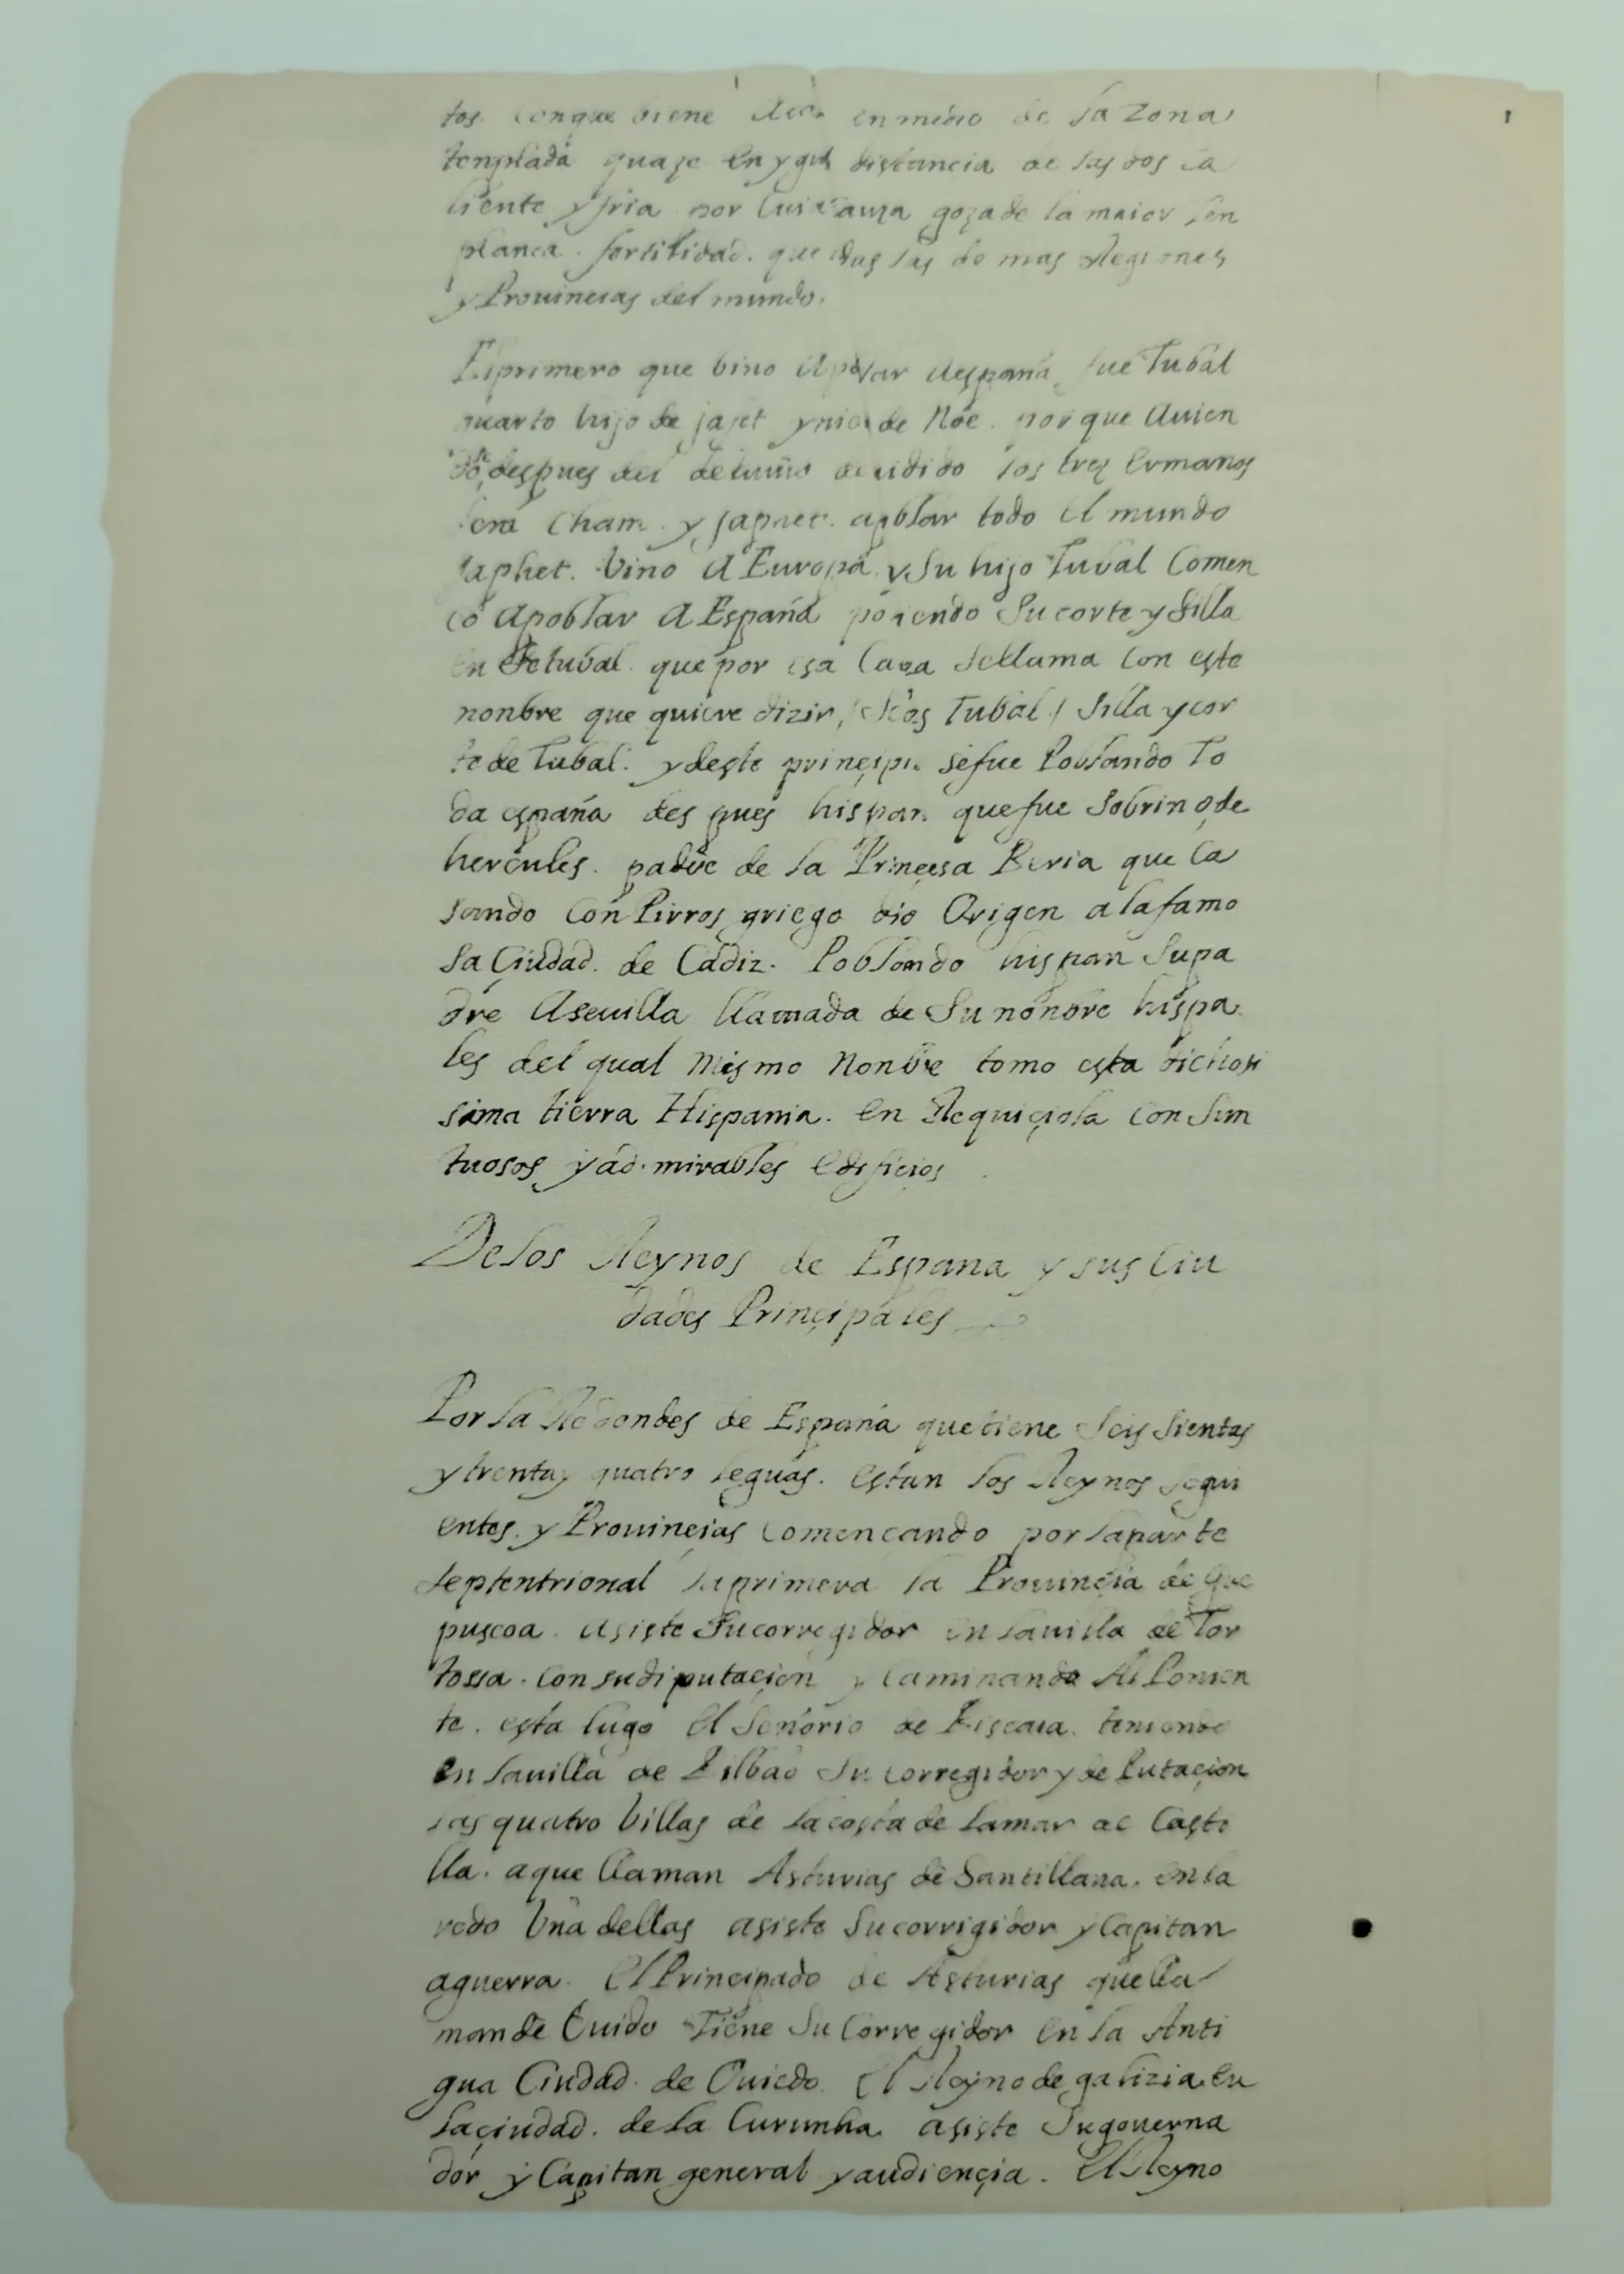 tos. conque viene en medio de la zona
templada quaze en ygul distancia de las dos ca
liente y fria por cuia cauza goza de la maior ten
planca. fertilidad. que todas las de mas Regiones
y Prouincias del mundo.
El primero que bino apoblar aespaña fue Tubal
quarto hijo de jafet ynieto de Nóe. porque auien
dose despues del deluuio deuidido los tres ermanos
Cham. y japhet. apoblar todo el mundo
japhet. vino a Europa. y Su hijo Tubal Comen
co apoblar a España poniendo Su corte y Silla
en Setubal. que por esa Cauza Sellama Con este
nonbre que quiere dizir, Tubal / Silla ycor
te de Tubal. y deste principio sefue Poblando To
da españa despues hispan quefue Sobrino de
hercules. padre de la Princesa Iberia que Ca
sando Con Pirros griego dio Origen alafamo
sa Ciudad. de Cadiz. Poblando hispan Supa
dre Aseuilla llamada de Su nonbre hispa
les del qual mismo Nonbre tomo esta dichosi
sima tierra Hispania. en Requiciola con Sun
tuosos y ad.mirables edificios
De los Reynos de Espana y sus Ciu
dades Principales
Por la Redondes de España quetiene Seis Sientas
y trentay quatro leguas. estan los Reynos Segui
entes. y Prouincias comencando por laparte
Septentrional laprimera la Prouincia de Gue
puscoa. asiste Sucorregidor en lauilla de Tor
tossa. con sudiputacion y Caminando Al Ponien
te. esta lugo el Señorio de Biscaia. teniendo
en lauilla de Bilbao Su corregidor y de Putacion
las quatro Villas de lacosta de Lamar de Caste
lla. aque llaman Asturias de Santillana. en la
redo Una dellas asiste Sucorrigidor y Capitan
aguerra. El Principado de Asturias quella
man de Ouido Tiene Su Corregidor en la Anti
gua Ciudad. de Ouiedo. El Reyno de galizia en
la ciudad. de la Curunha. asiste Sugouerna
dor y Capitan general yaudiencia. El Reyno